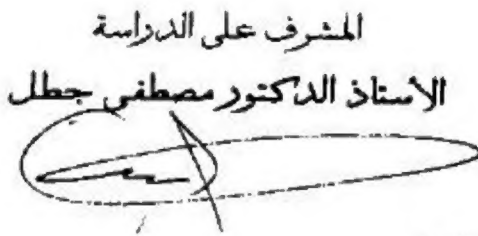 المشرف على الدراسة
الأستاذ الدكتور مصطفى جطل